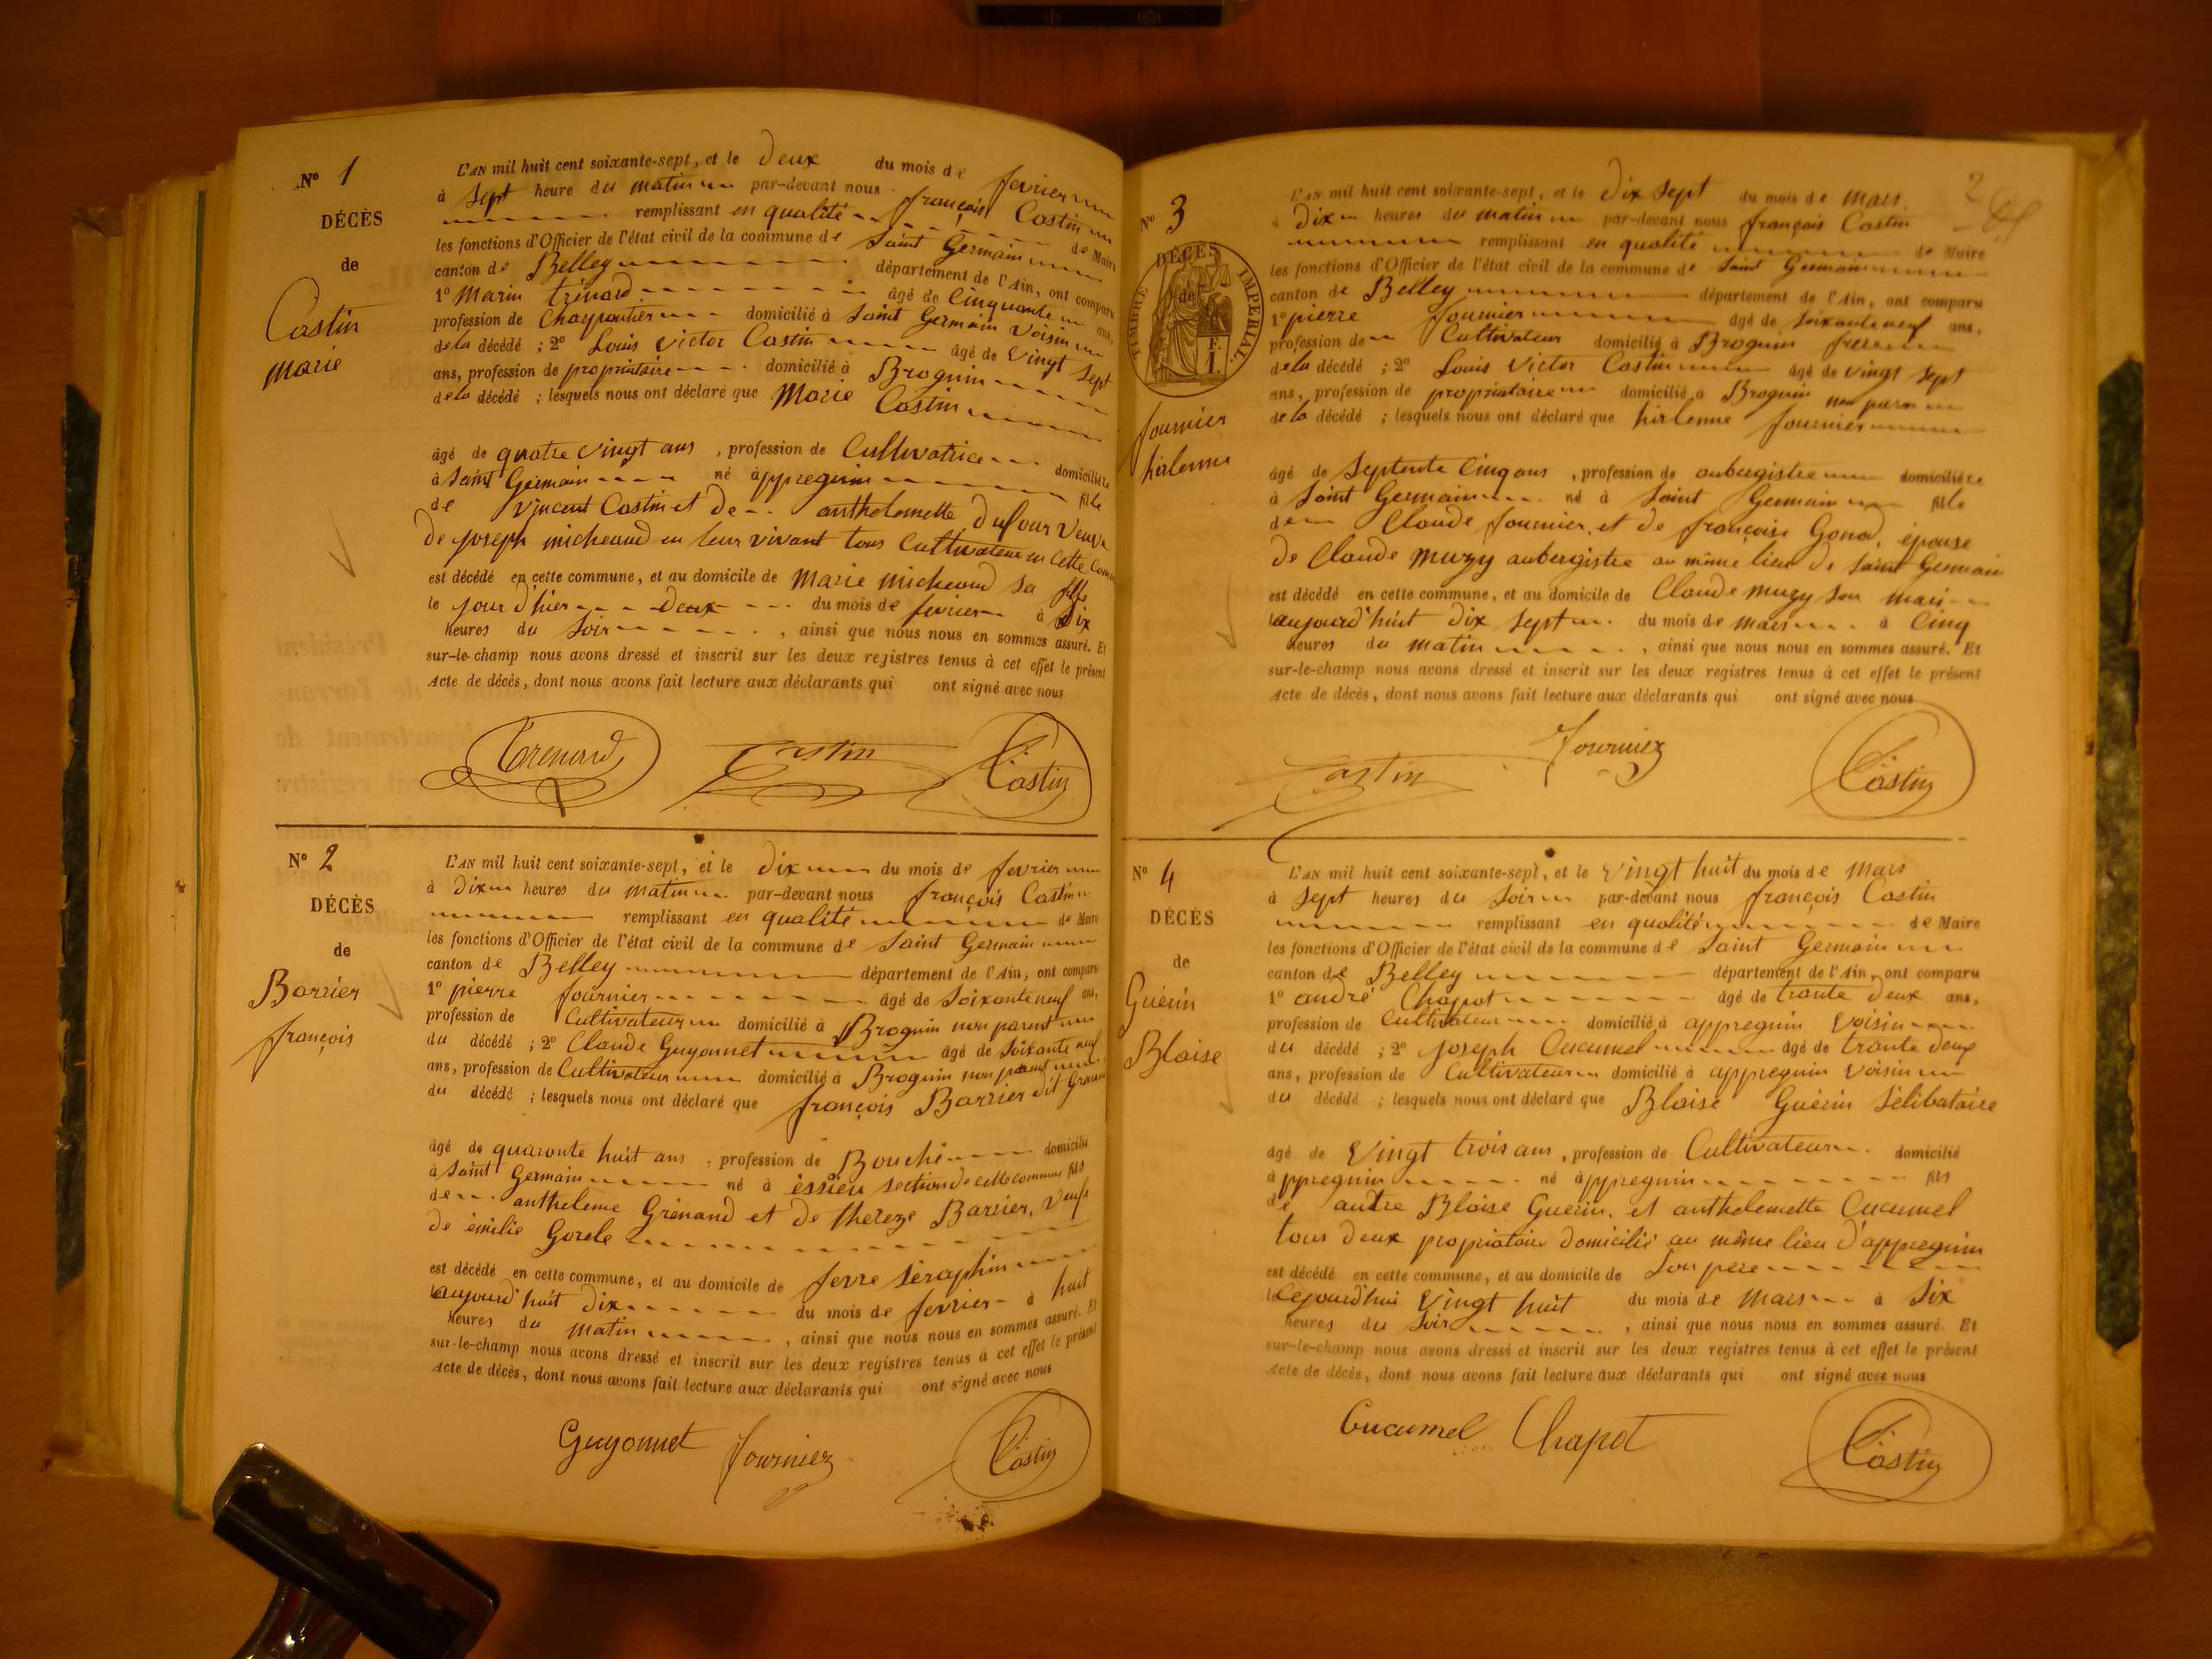 N° 1
DÉCÈS
de
Castin
Marie
L'AN mil huit cent soixante-sept, et le deux du mois de fevrier
à sept heure du matin par-devant nous françois Castin
remplissant en qualité de Maire
les fonctions d'Officier de l'état civil de la commune de Saint Germain
canton de Belley département de l'Ain, ont comparu
1° Marin trénard âgé de Cinquante ans,
profession de Charpentier domicilié à Saint Germain Voisin
de la décédé ; 2° Louis Victor Castin âgé de vingt sept
ans, profession de propriétaire domicilié à Brognin
de la décédé ; lesquels nous ont déclaré que Marie Castin
âgé de quatre vingt ans , profession de Cultivatrice domiciliée
à Saint Germain né à appregnin fille
de Vincent Castin et de anthelmette Dufour Veuve
de joseph micheaud en leur vivant tous Cultivateur en Cette Comm
est décédé en cette commune, et au domicile de Marie micheaud sa fille
le jour d'hier deux du mois de fevrier à dix
heures du Soir , ainsi que nous nous en sommes assuré. Et
sur-le-champ nous avons dressé et inscrit sur les deux registres tenus à cet effet le présent
Acte de décès, dont nous avons fait lecture aux déclarants qui ont signé avec nous
Trenard Castin Castin
N° 2
DÉCÈS
de
Barrier
françois
L'AN mil huit cent soixante-sept, et le dix du mois de fevrier
à Dix heures du matin par-devant nous françois Castin
remplissant en qualité de Maire
les fonctions d'Officier de l'état civil de la commune de Saint Germain
canton de Belley département de l'Ain, ont comparu
1° pierre fournier âgé de Soixante neuf ans,
profession de Cultivateur domicilié à Brognin non parent
du décédé ; 2° Claude Guyonnet âgé de Soixante neuf
ans, profession de Cultivateur domicilié à Brognin non parent
du décédé ; lesquels nous ont déclaré que françois Barrier dit
âgé de quaronte huit ans , profession de Bouché domicilié
à Saint Germain né à èssieu section de cette commune fils
de antheleme Grènand et de thereze Barrier, Veuf
de èmilie Gorele
est décédé en cette commune, et au domicile de fevre sèraphin
aujourd'huit dix du mois de fevrier à huit
heures du matin , ainsi que nous nous en sommes assuré. Et
sur-le-champ nous avons dressé et inscrit sur les deux registres tenus à cet effet le présent
Acte de décès, dont nous avons fait lecture aux déclarants qui ont signé avec nous
Guyonnet fournier Castin
2
N° 3
DÉCÈS
de
TIMBRE IMPERIAL
F.
1.
fournier
hirlenne
L'AN mil huit cent soixante-sept, et le dix sept du mois de mars
à dix heures du matin par-devant nous françois Castin
remplissant en qualité de Maire
les fonctions d'Officier de l'état civil de la commune de Saint Germain
canton de Belley département de l'Ain, ont comparu
1° pierre fournier âgé de Soixante neuf ans,
profession de Cultivateur domicilié à Brognin frere
de la décédé ; 2° Louis Victor Castin âgé de vingt sept
ans, profession de propriataire domicilié à Brognin non paran
de la décédé ; lesquels nous ont déclaré que hirlenne fournier
âgé de Septente Cinq ans , profession de aubergistre domiciliée
à Saint Germain né à Saint Germain fille
de Claude fournier et de françoise Gonod, èpouse
de Claude Muzy aubergistre au même lieu de Saint Germain
est décédé en cette commune, et au domicile de Claude Muzy Son mari
aujourd'huit dix sept du mois de mars à Cinq
heures du matin , ainsi que nous nous en sommes assuré. Et
sur-le-champ nous avons dressé et inscrit sur les deux registres tenus à cet effet le présent
Acte de décès, dont nous avons fait lecture aux déclarants qui ont signé avec nous
Castin Fournier Castin
N° 4
DÉCÈS
de
Guérin
Blaise
L'AN mil huit cent soixante-sept, et le vingt huit du mois de Mars
à Sept heures du Soir par-devant nous françois Castin
remplissant en qualité de Maire
les fonctions d'Officier de l'état civil de la commune de Saint Germain
canton de Belley département de l'Ain, ont comparu
1° andré Chapot âgé de trante deux ans,
profession de Cultivateur domicilié à appregnin Voisin
du décédé ; 2° joseph Cucumel âgé de trante deux
ans, profession de Cultivateur domicilié à appregnin Voisin
du décédé ; lesquels nous ont déclaré que Blaise Guèrin Sélibataire
âgé de Vingt trois ans , profession de Cultivateur domicilié
à ppregnin né àppregnin fils
de autre Blaise Guerin, et anthelemette Cucumel
tous deux propriataire domicilié au même lieu d'appregnin
est décédé en cette commune, et au domicile de Son père
Lejourd'hui Vingt huit du mois de Mars à Six
heures du Soir , ainsi que nous nous en sommes assuré. Et
sur-le-champ nous avons dressé et inscrit sur les deux registres tenus à cet effet le présent
Acte de décès, dont nous avons fait lecture aux déclarants qui ont signé avec nous
Cucumel Chapot Castin